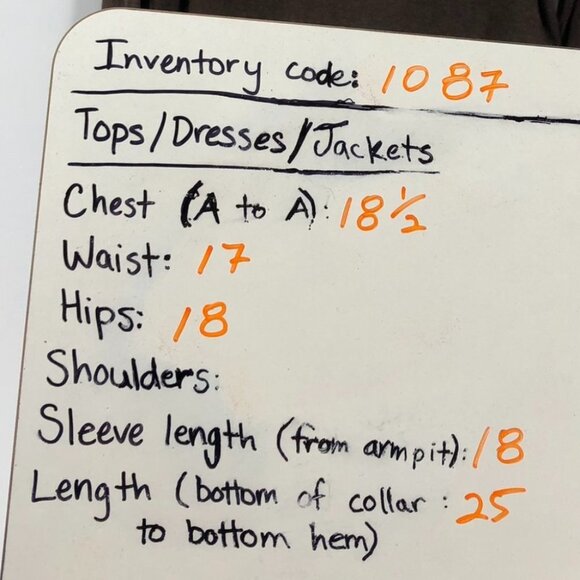 Inventory code: 1087
Tops/Dresses/Jackets
Chest (A to A): 18 1/2
Waist: 17
Hips: 18
Shoulders:
Sleeve length (from armpit): 18
Length (bottom of collar : 25
to bottom hem)